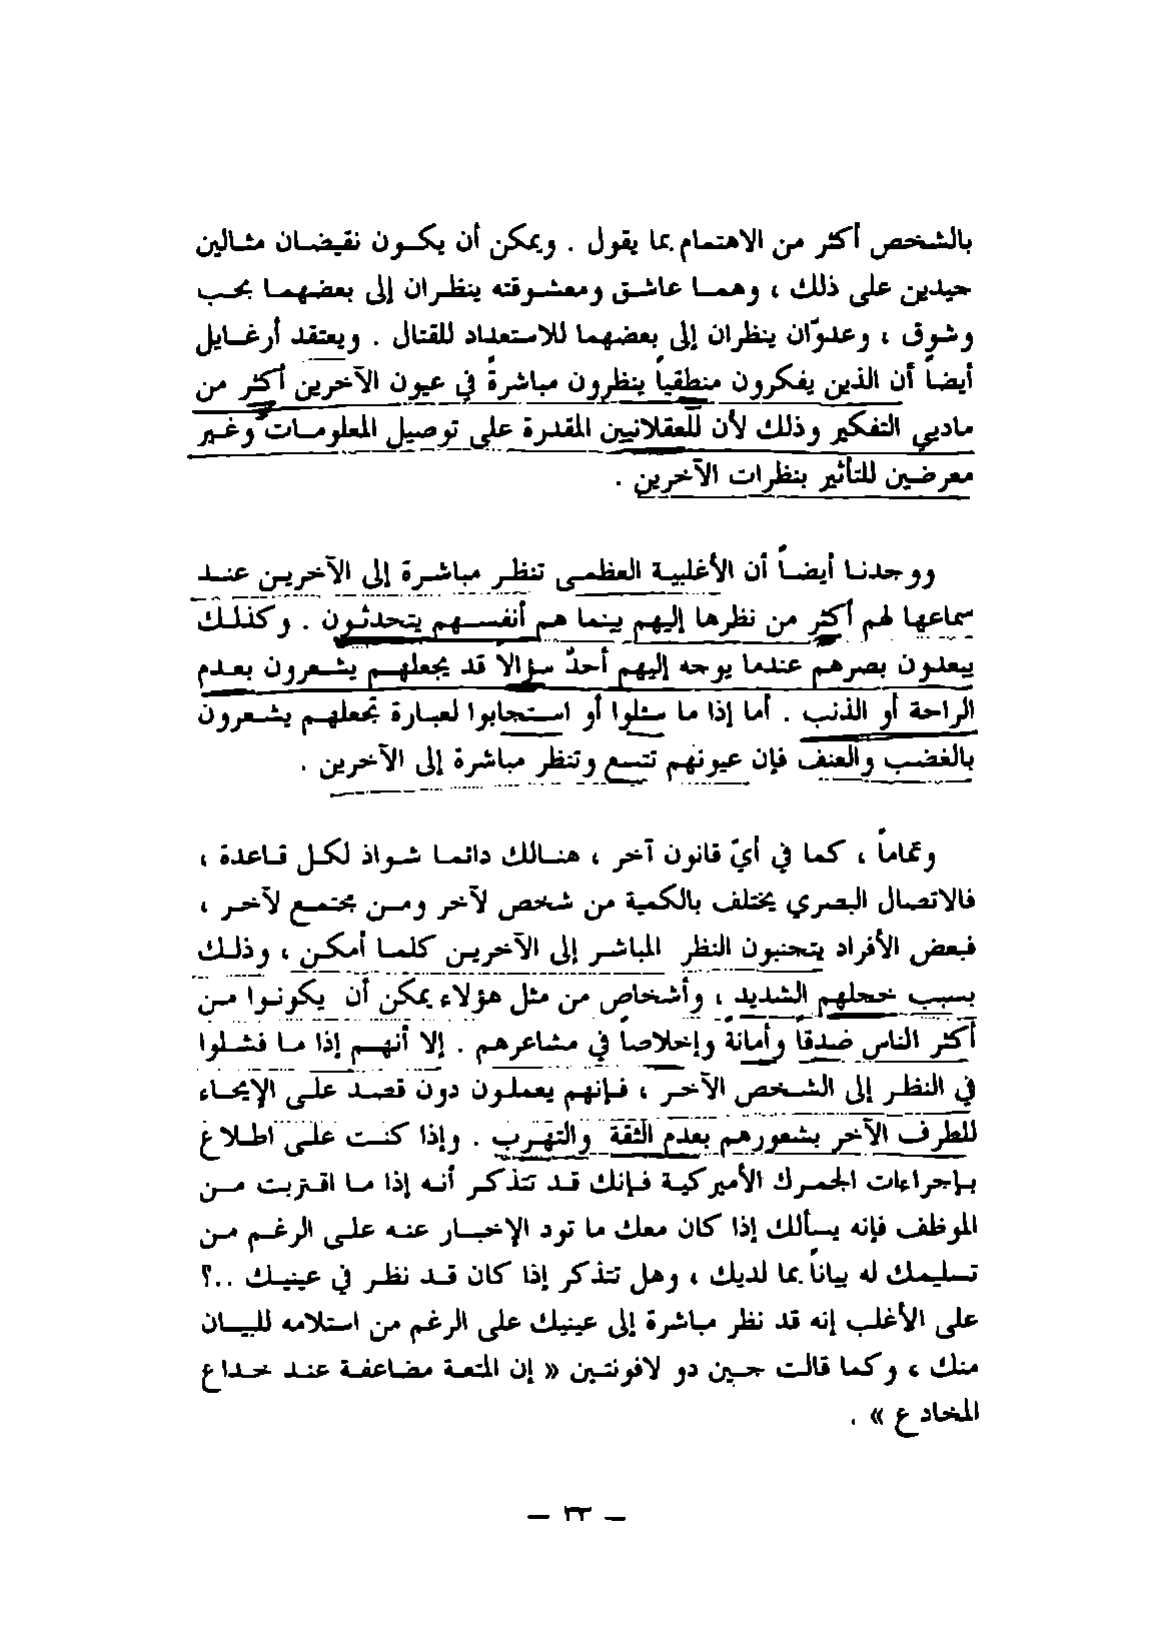 بالشخص أكثر من الاهتمام بما يقول . ويمكن أن يكون نقيضان مثالين
جيدين على ذلك ، وهما عاشق ومعشوقته ينظران إلى بعضهما بحب
وشوق ، وعدوّان ينظران إلى بعضهما للاستعداد للقتال . ويعتقد أرغايل
أيضاً أن الذين يفكرون منطقياً ينظرون مباشرةً في عيون الآخرين أكثر من
ماديي التفكير وذلك لأن للعقلانيين المقدرة على توصيل المعلومات وغير
معرضين للتأثير بنظرات الآخرين .
ووجدنا أيضاً أن الأغلبية العظمى تنظر مباشرة إلى الآخرين عند
سماعها لهم أكثر من نظرها إليهم بينما هم أنفسهم يتحدثون . وكذلك
يبعدون بصرهم عندما يوجه إليهم أحدٌ سؤالاً قد يجعلهم يشعرون بعدم
الراحة أو الذنب . أما إذا ما سئلوا أو استجابوا لعبارة تجعلهم يشعرون
بالغضب والعنف فإن عيونهم تتسع وتنظر مباشرة إلى الآخرين .
وتماماً ، كما في أيّ قانون آخر ، هنالك دائما شواذ لكل قاعدة ،
فالاتصال البصري يختلف بالكمية من شخص لآخر ومن مجتمع لآخر ،
فبعض الأفراد يتجنبون النظر المباشر إلى الآخرين كلما أمكن ، وذلك
بسبب خجلهم الشديد ، وأشخاص من مثل هؤلاء يمكن أن يكونوا من
أكثر الناس صدقاً وأمانةً وإخلاصاً في مشاعرهم . إلا أنهم إذا ما فشلوا
في النظر إلى الشخص الآخر ، فإنهم يعملون دون قصد على الإيحاء
للطرف الآخر بشعورهم بعدم الثقة والتهرب . وإذا كنت على اطلاع
بإجراءات الجمرك الأميركية فإنك قد تتذكر أنه إذا ما اقتربت من
الموظف فإنه يسألك إذا كان معك ما تود الإخبار عنه على الرغم من
تسليمك له بياناً بما لديك ، وهل تتذكر إذا كان قد نظر في عينيك ..؟
على الأغلب إنه قد نظر مباشرة إلى عينيك على الرغم من استلامه للبيان
منك ، وكما قالت جين دو لافونتين « إن المتعة مضاعفة عند خداع
المخادع » .
– ٣٣ –